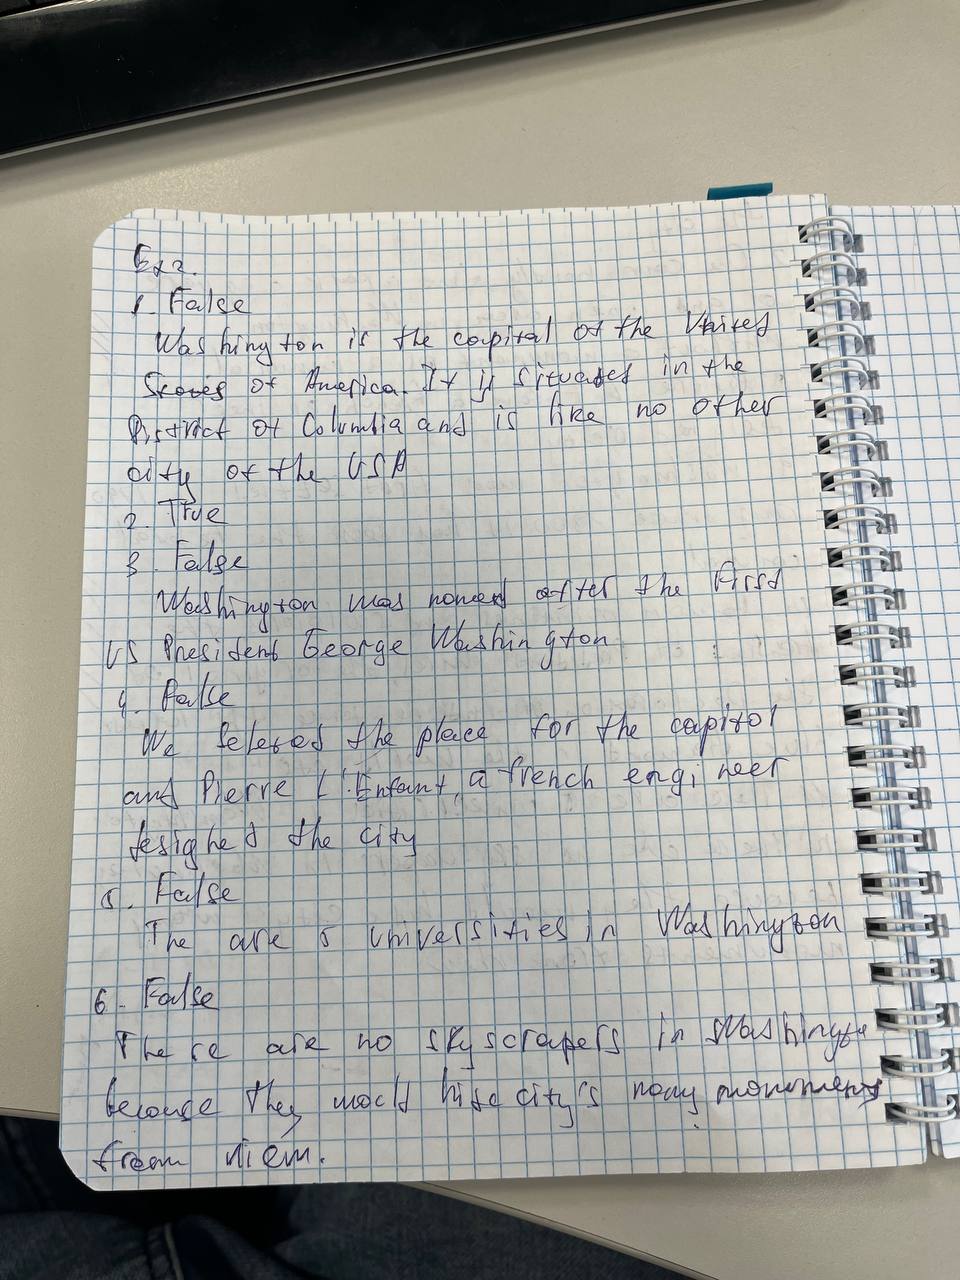 Ex 2.
1. False
Washington is the capital of the United
States of America. It is situated in the
District of Columbia and is like no other
city of the USA
2. True
3. False
Washington was named after the first
US President George Washington
4. False
We seleted the place for the capitol
and Pierre L'Enfant, a french engineer
designed the city
5. False
The are 5 universities in Washington
6. False
There are no skyscrapers in Washington
because they would hide city's many monuments
from